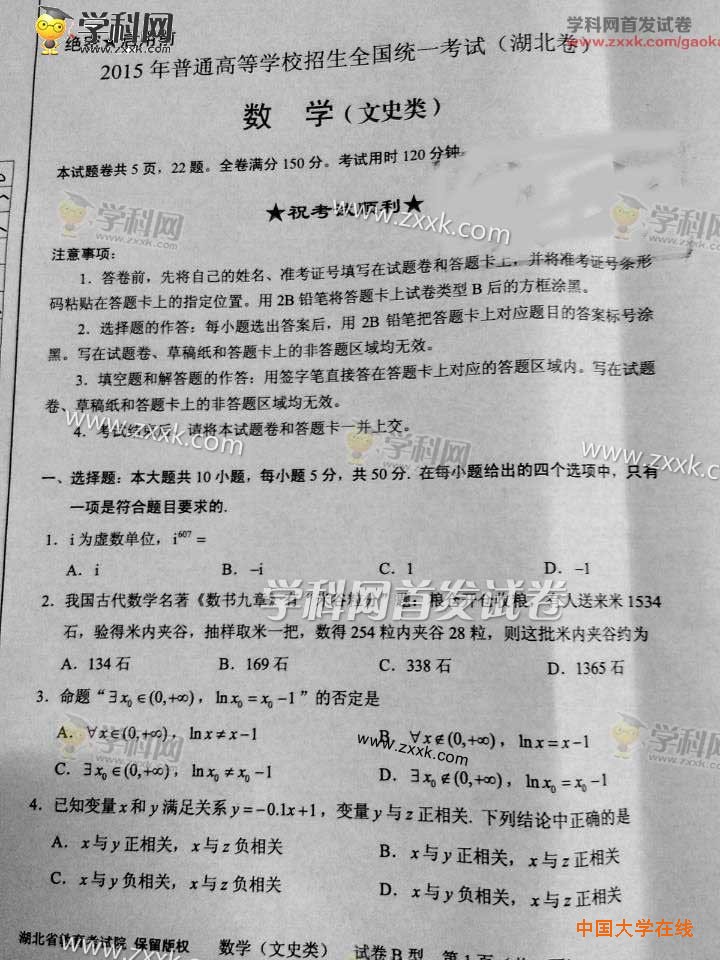 学科网首发试卷
www.zxxk.com/gaoka
学科网
zxxk.com
2015 年普通高等学校招生全国统一考试（湖北卷）
数 学（文史类）
本试题卷共 5 页，22 题。全卷满分 150 分。考试用时 120 分钟
★祝考 顺利★
注意事项：
1．答卷前，先将自己的姓名、准考证号填写在试题卷和答题卡上，并将准考证号条形
码粘贴在答题卡上的指定位置。用 2B 铅笔将答题卡上试卷类型 B 后的方框涂黑。
2．选择题的作答：每小题选出答案后，用 2B 铅笔把答题卡上对应题目的答案标号涂
黑。写在试题卷、草稿纸和答题卡上的非答题区域均无效。
3．填空题和解答题的作答：用签字笔直接答在答题卡上对应的答题区域内。写在试题
卷、草稿纸和答题卡上的非答题区域均无效。
4．考试结束后，请将本试题卷和答题卡一并上交。
一、选择题：本大题共 10 小题，每小题 5 分，共 50 分．在每小题给出的四个选项中，只有
一项是符合题目要求的．
1．i 为虚数单位，i⁶⁰⁷ =
A．i B．-i C．1 D．-1
学科网首发试卷
2．我国古代数学名著《数书九章》有 题：粮仓开仓收粮，有人送来米 1534
石，验得米内夹谷，抽样取米一把，数得 254 粒内夹谷 28 粒，则这批米内夹谷约为
A．134 石 B．169 石 C．338 石 D．1365 石
3．命题“∃x₀∈(0,+∞)，ln x₀ = x₀ -1”的否定是
A．∀x∈(0,+∞)，ln x ≠ x -1 B．∀x∉(0,+∞)，ln x = x -1
C．∃x₀∈(0,+∞)，ln x₀ ≠ x₀ -1 D．∃x₀∉(0,+∞)，ln x₀ = x₀ -1
4．已知变量 x 和 y 满足关系 y = -0.1x +1，变量 y 与 z 正相关．下列结论中正确的是
A．x 与 y 正相关，x 与 z 负相关 B．x 与 y 正相关，x 与 z 正相关
C．x 与 y 负相关，x 与 z 负相关 D．x 与 y 负相关，x 与 z 正相关
中国大学在线
湖北省 考试院 保留版权 数学（文史类） 试卷 B 型 第 1 页